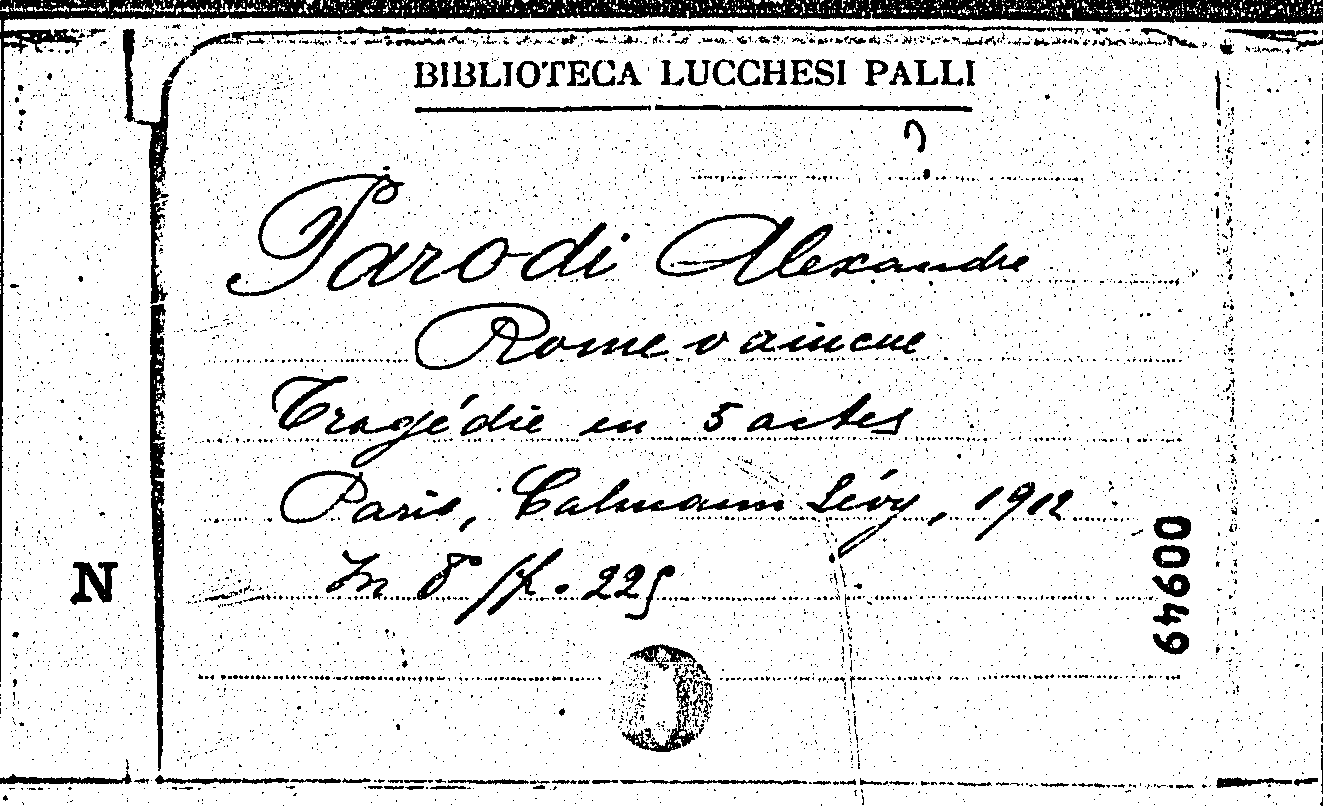 BIBLIOTECA LUCCHESI PALLI
?
Parodi Alexandre
Rome vaincue
Tragédie en 5 actes
Paris, Calmann Lévy, 1912
In 8 pp. 225
N
00949